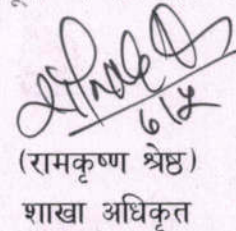 ६/५
(रामकृष्ण श्रेष्ठ)
शाखा अधिकृत